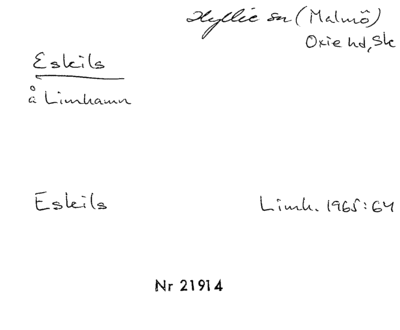 Hyllie sn (Malmö)
Oxie hd, Sk
Eskils
å Limhamn
Eskils Limh. 1965:64
Nr 21914